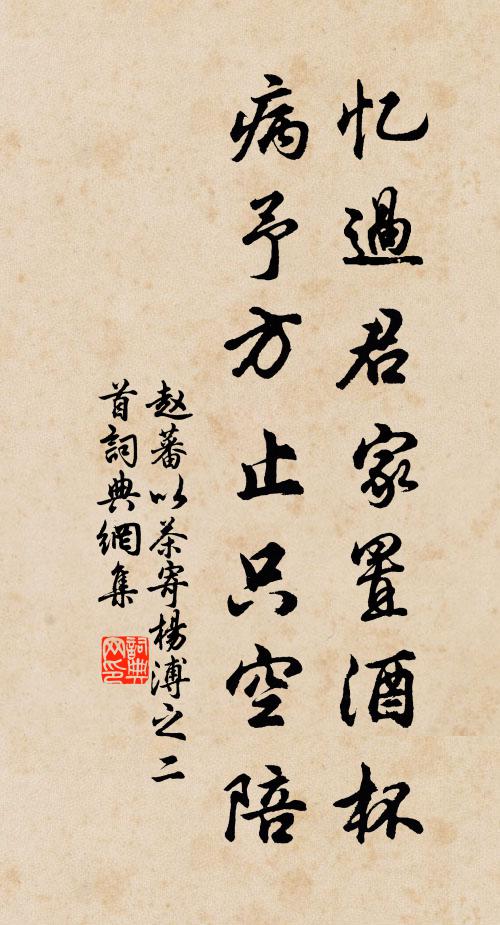 忆過君家置酒杯
病予方止只空陪
赵蕃以茶寄楊溥之二
首詞典網集
詞典
网印